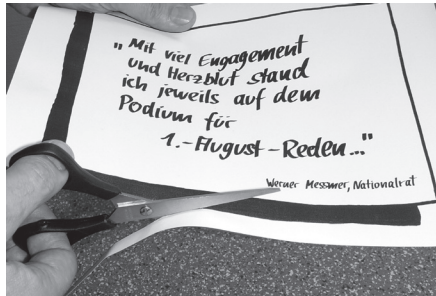 „Mit viel Engagement
und Herzblut stand
ich jeweils auf dem
Podium für
1.-August-Reden..."
Werner Messmer, Nationalrat